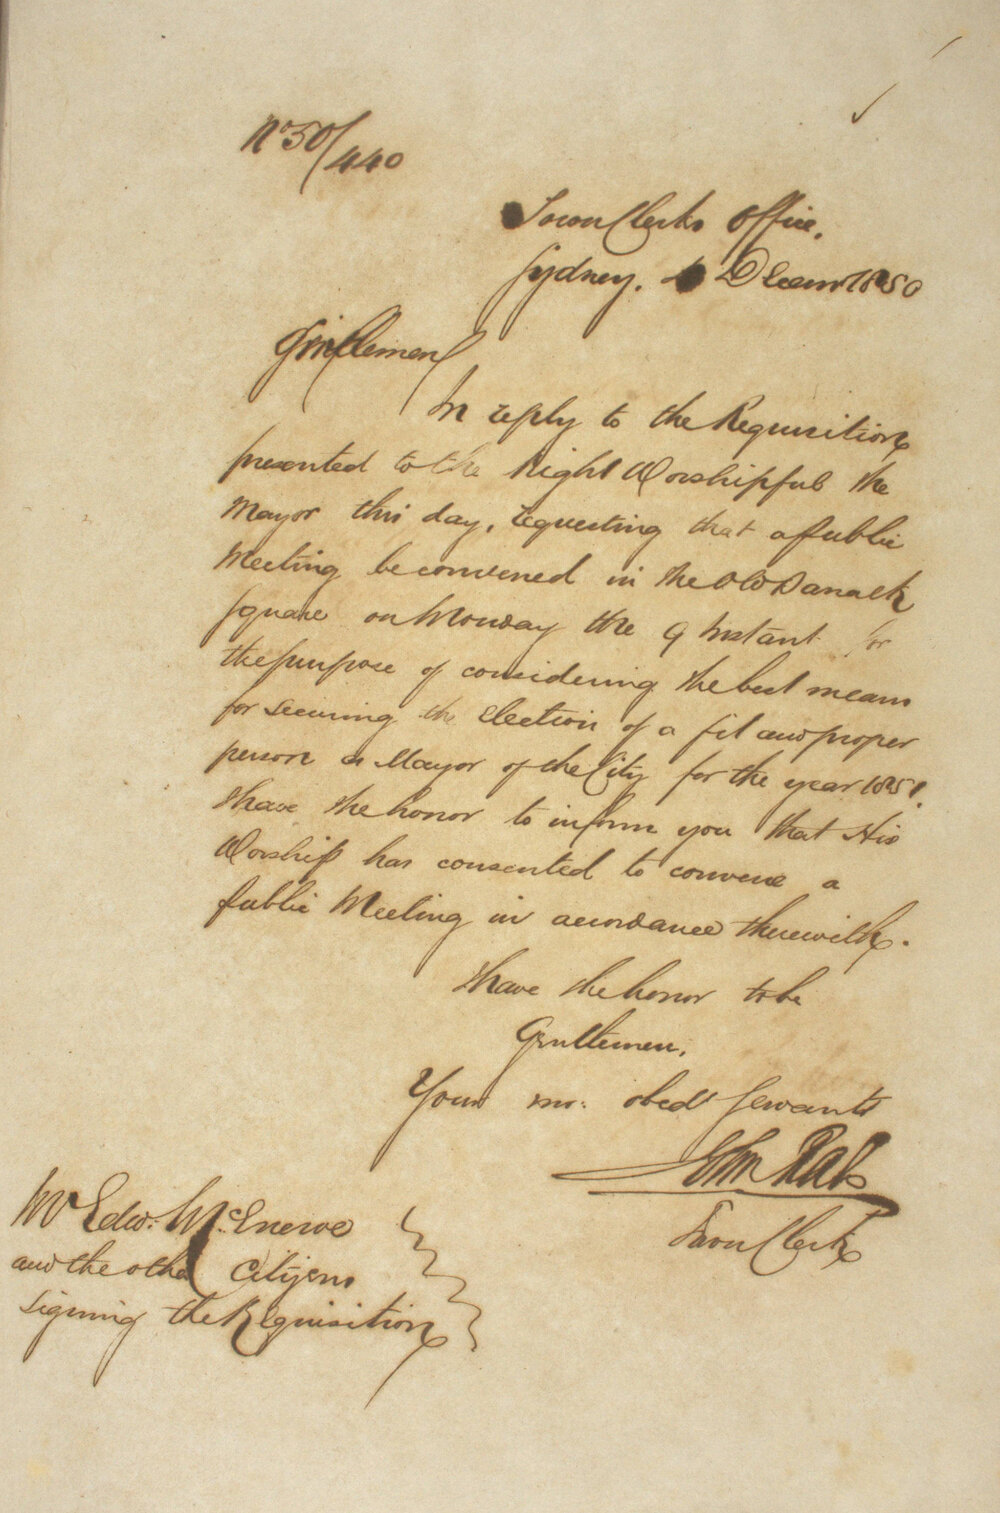 No 50/440
Town Clerks Office.
Sydney. Decemr 1850
Gentlemen
In reply to the Requisition
presented to the Right Worshipful the
Mayor this day, requesting that a Public
Meeting be convened in the Old Barrack
Square on Monday the 9 Instant for
the purpose of considering the best means
for securing the election of a fit and proper
person as Mayor of the City for the year 1851.
I have the honor to inform you that His
Worship has consented to convene a
Public Meeting in accordance therewith.
I have the honor to be
Gentlemen.
Your mo: obedt Servant
John Rae
Town Clerk
Mr Edw: McEnerve
and the other Citizens
signing the Requisition